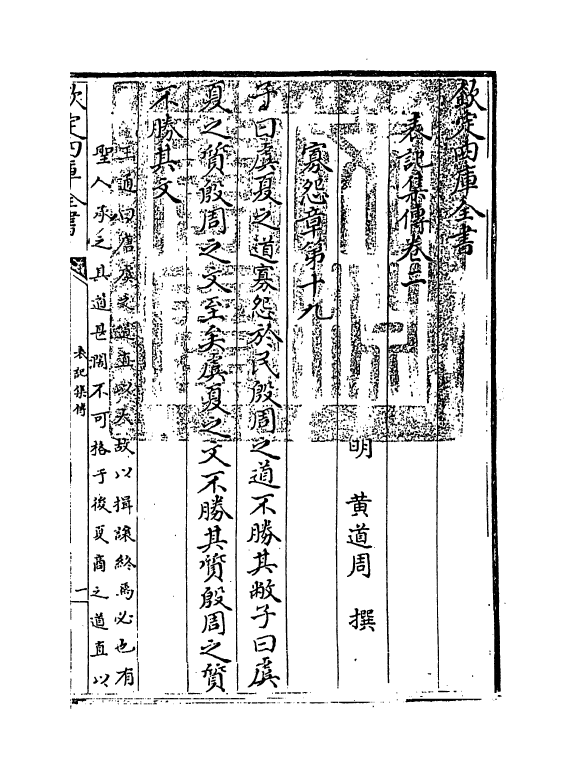 欽定四庫全書
表記集傳卷二
明 黃道周 撰
寡怨章第十九
子曰虞夏之道寡怨於民殷周之道不勝其敝子曰虞
夏之質殷周之文至矣虞夏之文不勝其質殷周之質
不勝其文
道曰虞夏之道直以大故以揖讓終焉必也有
聖人承之其道甚闊不可格于後夏商之道直以
欽定四庫全書
表記集傳
一